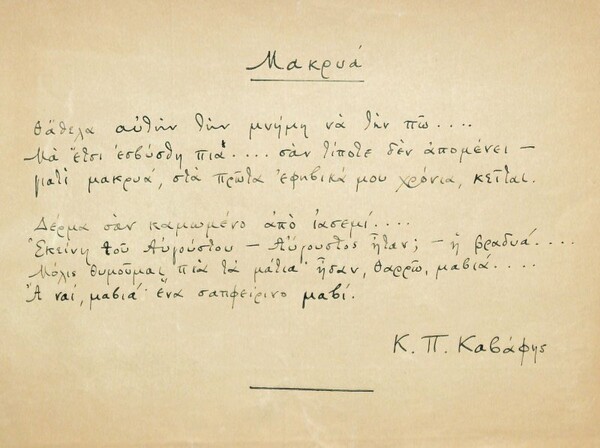 Μακρυά
Θάθελα αυτήν την μνήμη νὰ την πῶ....
Μὰ ἔτσι ἐσβύσθη πιὰ.... σὰν τίποτε δὲν ἀπομένει —
γιατὶ μακρυά, στὰ πρῶτα ἐφηβικά μου χρόνια, κεῖται.
Δέρμα σὰν καμωμένο ἀπὸ ἰασεμί....
Ἐκείνη τοῦ Αὐγούστου — Αὔγουστος ἦταν; — ἡ βραδυά....
Μόλις θυμοῦμαι πιὰ τὰ μάτια· ἦσαν, θαρρῶ, μαβιά....
Ἆ ναί, μαβιά· ἕνα σαπφείρινο μαβί.
Κ. Π. Καβάφης